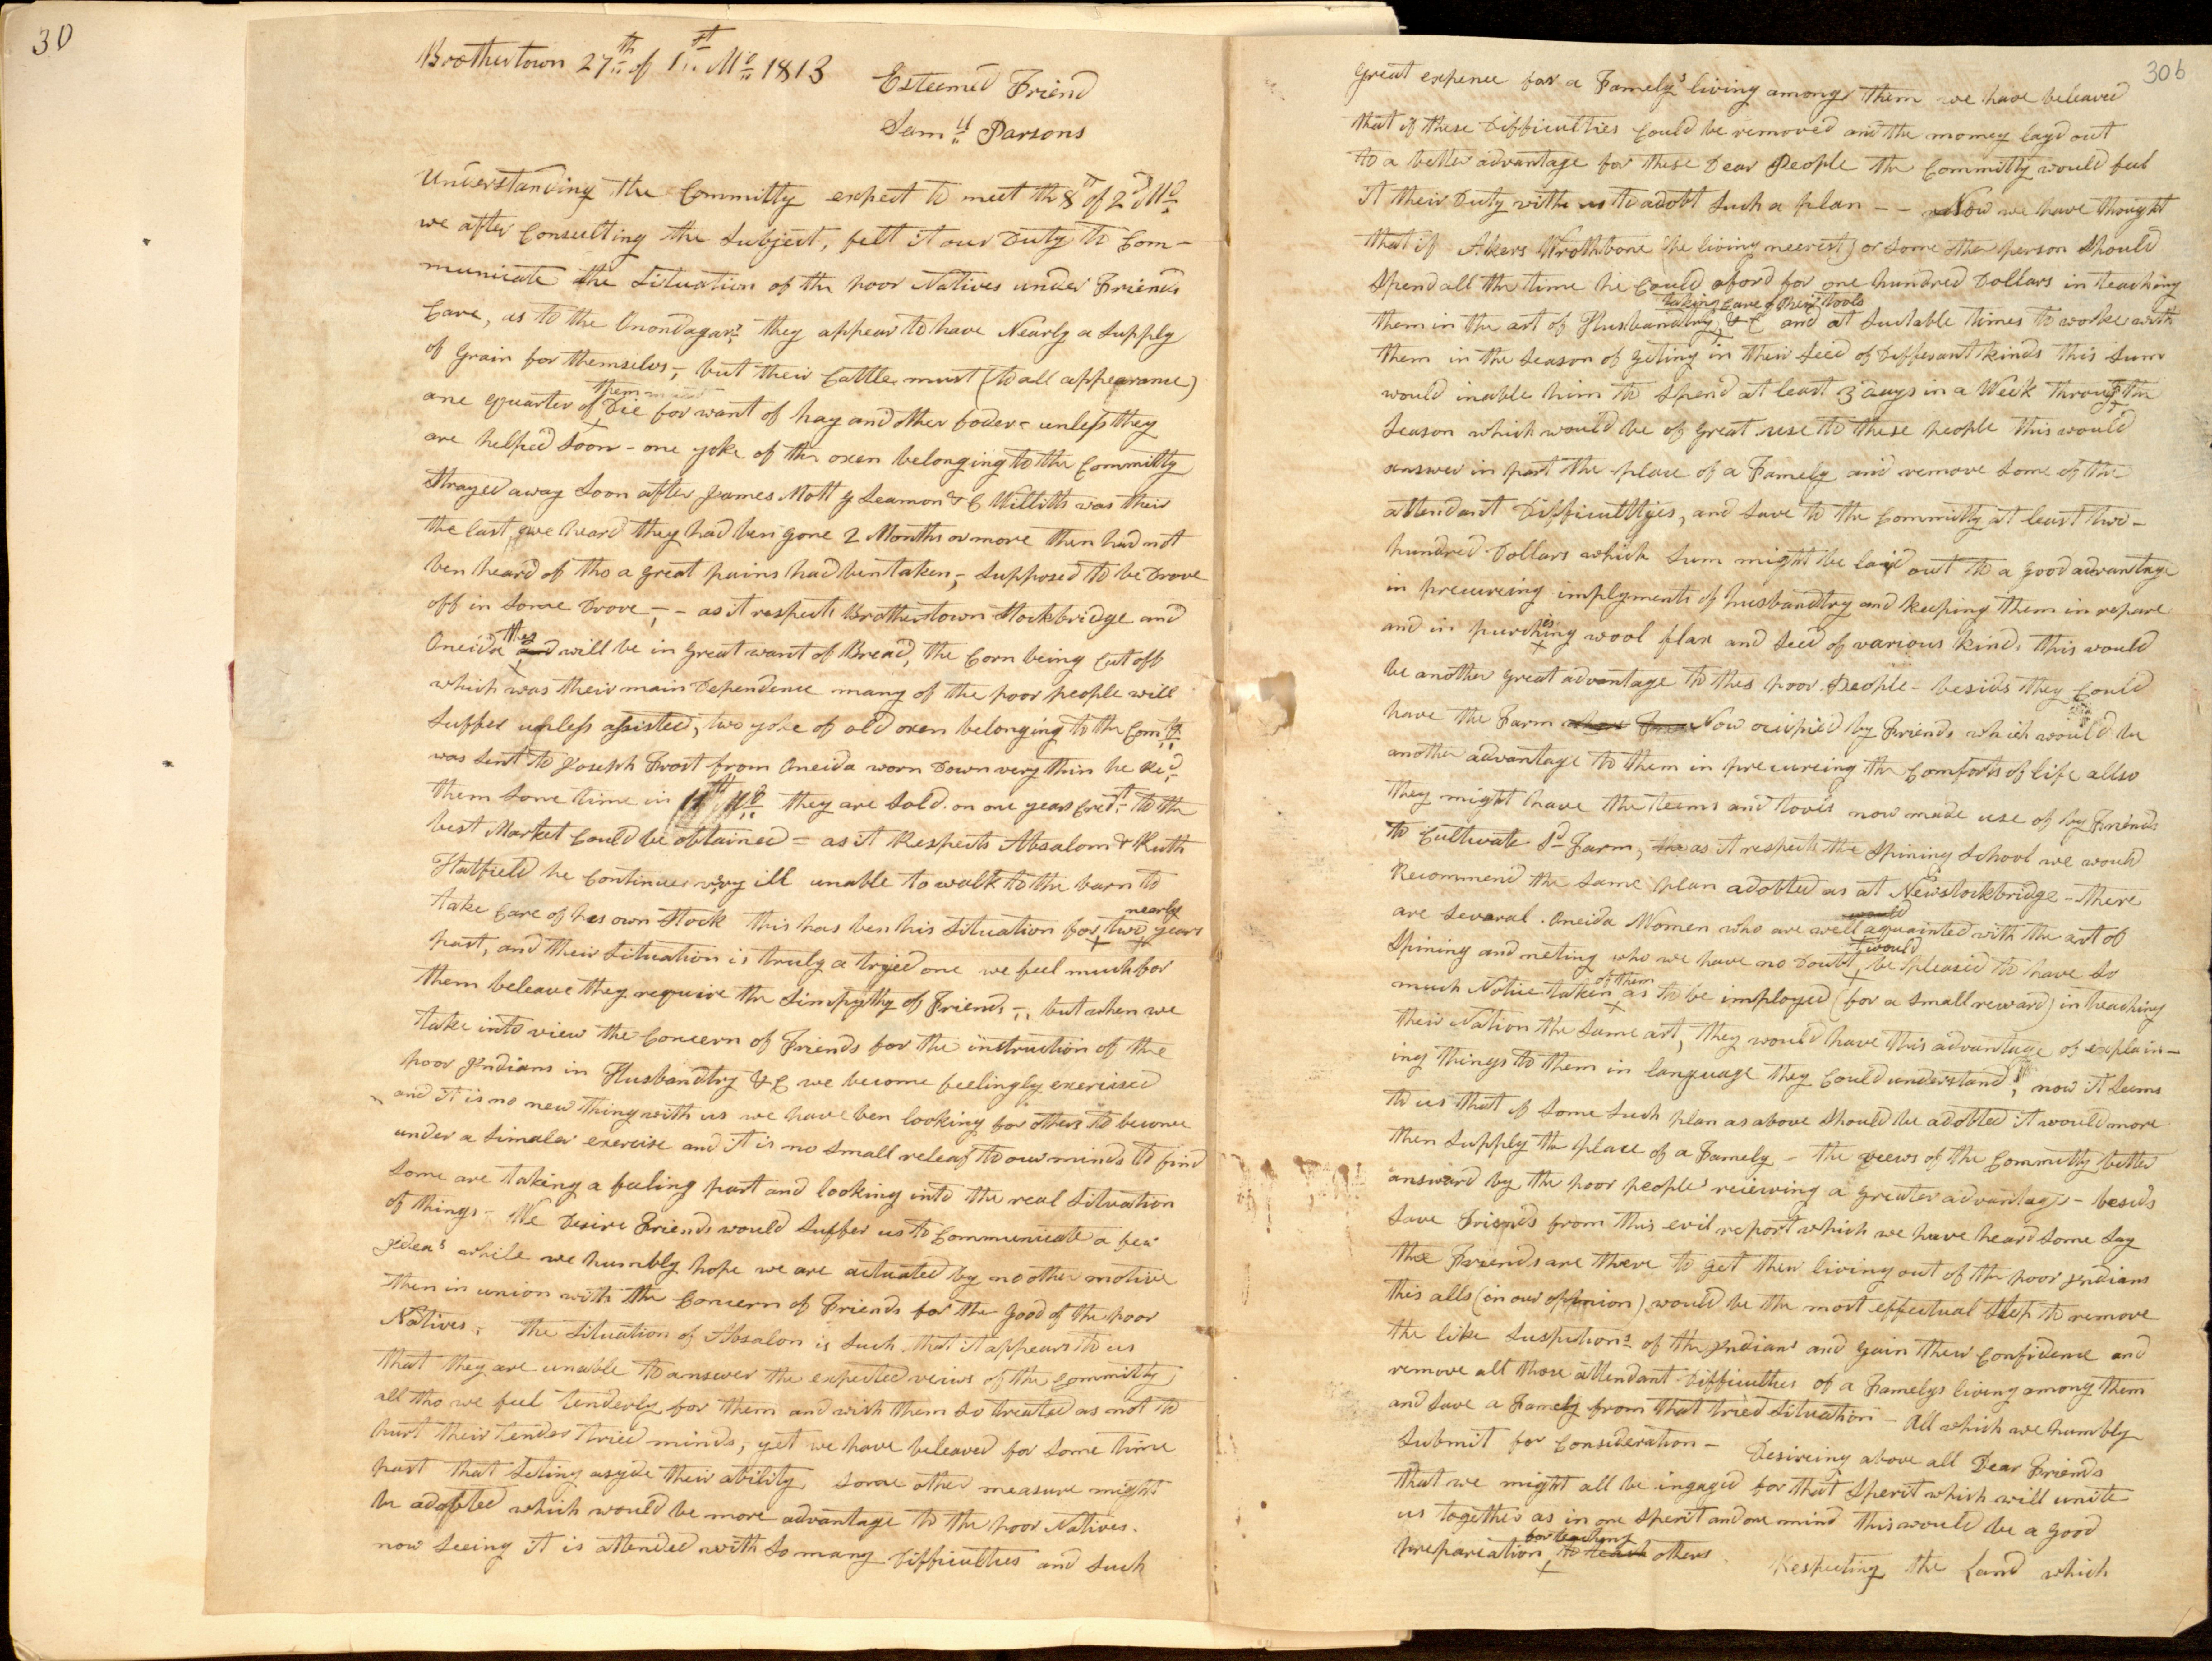 30
Brothertown 27th of 1st Mo 1813
Esteemed Friend
Samll Parsons
Understanding the Committy expect to meet the 8th of 2d Mo
we after Consulting the Subject, felt it our Duty to Com-
municate the Situation of the poor Natives under Friends
Care, as to the Onondagars they appear to have Nearly a Supply
of Grain for themselvs, but their Cattle must (to all appearance)
one quarter of them Die for want of hay and other foder - unless they
are helped Soon - one yoke of the oxen belonging to the Committy
Strayed away Soon after James Mott y Seamon & C Willitts was their
the last we heard they had ben gone 2 Months or more then had not
ben heard of tho a great pains had ben taken, Supposed to be Drove
off in Some Drove, - as it respects Brothertown Stockbridge and
Oneida they and will be in great want of Bread, the Corn being Cut off
which was their main Dependence many of the poor people will
Suffer unless assisted, two yoke of old oxen belonging to the Comty
was Sent to Joseph Frost from Oneida worn Down very thin he Red
them Some time in 11th Mo they are Sold on one years Credt to the
best Market Could be obtained = as it Respects Absalom & Ruth
Hatfield he Continues very ill unable to walk to the barn to
take Care of his own Stock this has ben his Situation for nearly two years
past, and their Situation is truly a tryed one we feel much for
them beleave they require the Simpythy of Friends -, but when we
take into view the Concern of Friends for the instruction of the
poor Indians in Husbandtry &C we become feelingly exercised
and it is no new thing with us we have ben looking for others to become
under a Simaler exercise and it is no Small releaf to our minds to find
Some are taking a feeling part and looking into the real Situation
of things - We Desire Friends would Suffer us to Communicate a few
Idea's while we humbly hope we are actuated by no other motive
then in union with the Concern of Friends for the Good of the poor
Natives, The Situation of Absalon is Such that it appears to us
that they are unable to answer the expected veiws of the Committy
all tho we feel tenderly for them and wish them So treated as not to
hurt their tender tried minds, yet we have beleaved for Some time
past that Seting asyde their ability Some other measure might
be adopted which would be more advantage to the poor Natives.
now Seeing it is attended with So many Difficulties and Such
30b
Great expence for a Famely's living among them we have beleaved
that if these Difficulties Could be removed and the money layd out
to a better advantage for these Dear People the Committy would feel
it their Duty with us to adobt Such a plan - - Now we have thought
that if Akers Wrothbone (he living neerest) or Some other person Should
Spend all the time he Could aford for one hundred Dollars in teaching
them in the art of Husbandtry, taking Care of their tools &C and at Sutable times to worke with
them in the Season of geting in their Seed of Differant kinds this Sum
would inable him to Spend at least 3 days in a Week through the
Season which would be of great use to these people this would
answer in part the place of a Famely and remove Some of the
attendant Difficulttyes, and Save to the Committy at least two-
hundred Dollars which Sum might be laid out to a good advantage
in precureing implyments of husbandtry and keeping them in repare
and in purchising wool flax and Seed of various kind, this would
be another great advantage to thes poor People - besids they Could
have the Farm Now ocupied by Friends which would be
another advantage to them in precureing the Comforts of life allso
they might have the teems and tools now made use of by Friends
to Cultivate Sd Farm, as it respects the Spining School we would
Recommend the Same plan adobted as at Newstockbridge - there
are Several Oneida Women who are well would aquainted with the art of
Spining and neting who we have no Doubt, would be pleased to have So
much Notice taken of them as to be imployed (for a Small reward) in teaching
their Nation the Same art, they would have this advantage of explain-
ing things to them in language they Could understand, now it Seems
to us that if Some Such plan as above Should be adobted it would more
then Supply the place of a Famely - the veews of the Committy better
answard by the poor people's reieving a greater advantage - besids
Save Friends from this evil report which we have heard Some Say
the Friends are there to get their living out of the poor Indians
this alls (in our oppinion) would be the most effectual Step to remove
the like Suspitions of the Indians and gain their Confidence and
remove all those attendant Difficulties of a Famelys living among them
and Save a Famely from that tried Situation - All which we humbly
Submit for Consideration - Desireing above all Dear Friends
that we might all be ingaged for that Sperit which will unite
us together as in one Sperit and one mind this would be a good
prepareation for teaching to teach others Respecting the Land which